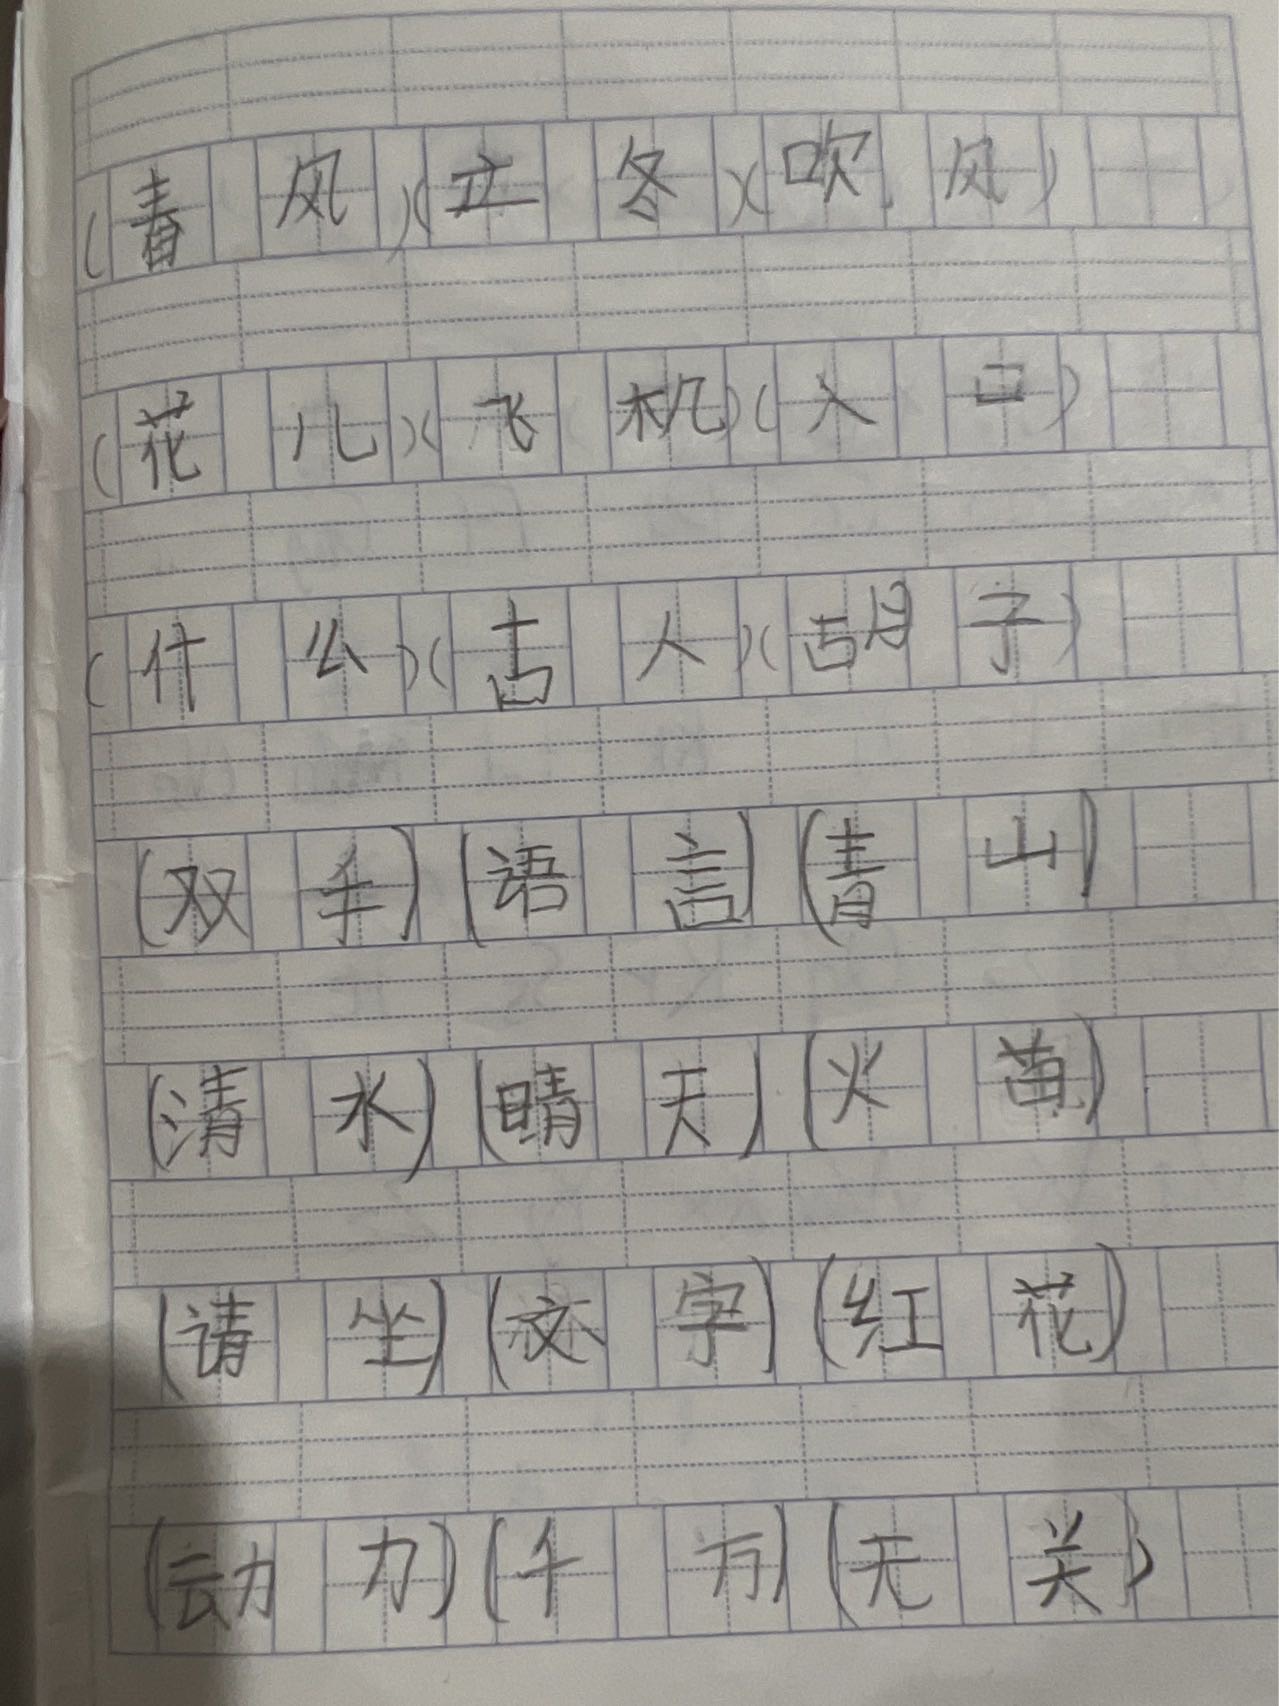 (春风)(立冬)(吹风)
(花儿)(飞机)(入口)
(什么)(古人)(胡子)
(双手)(语言)(青山)
(清水)(晴天)(火苗)
(请坐)(文字)(红花)
(动力)(千万)(无关)